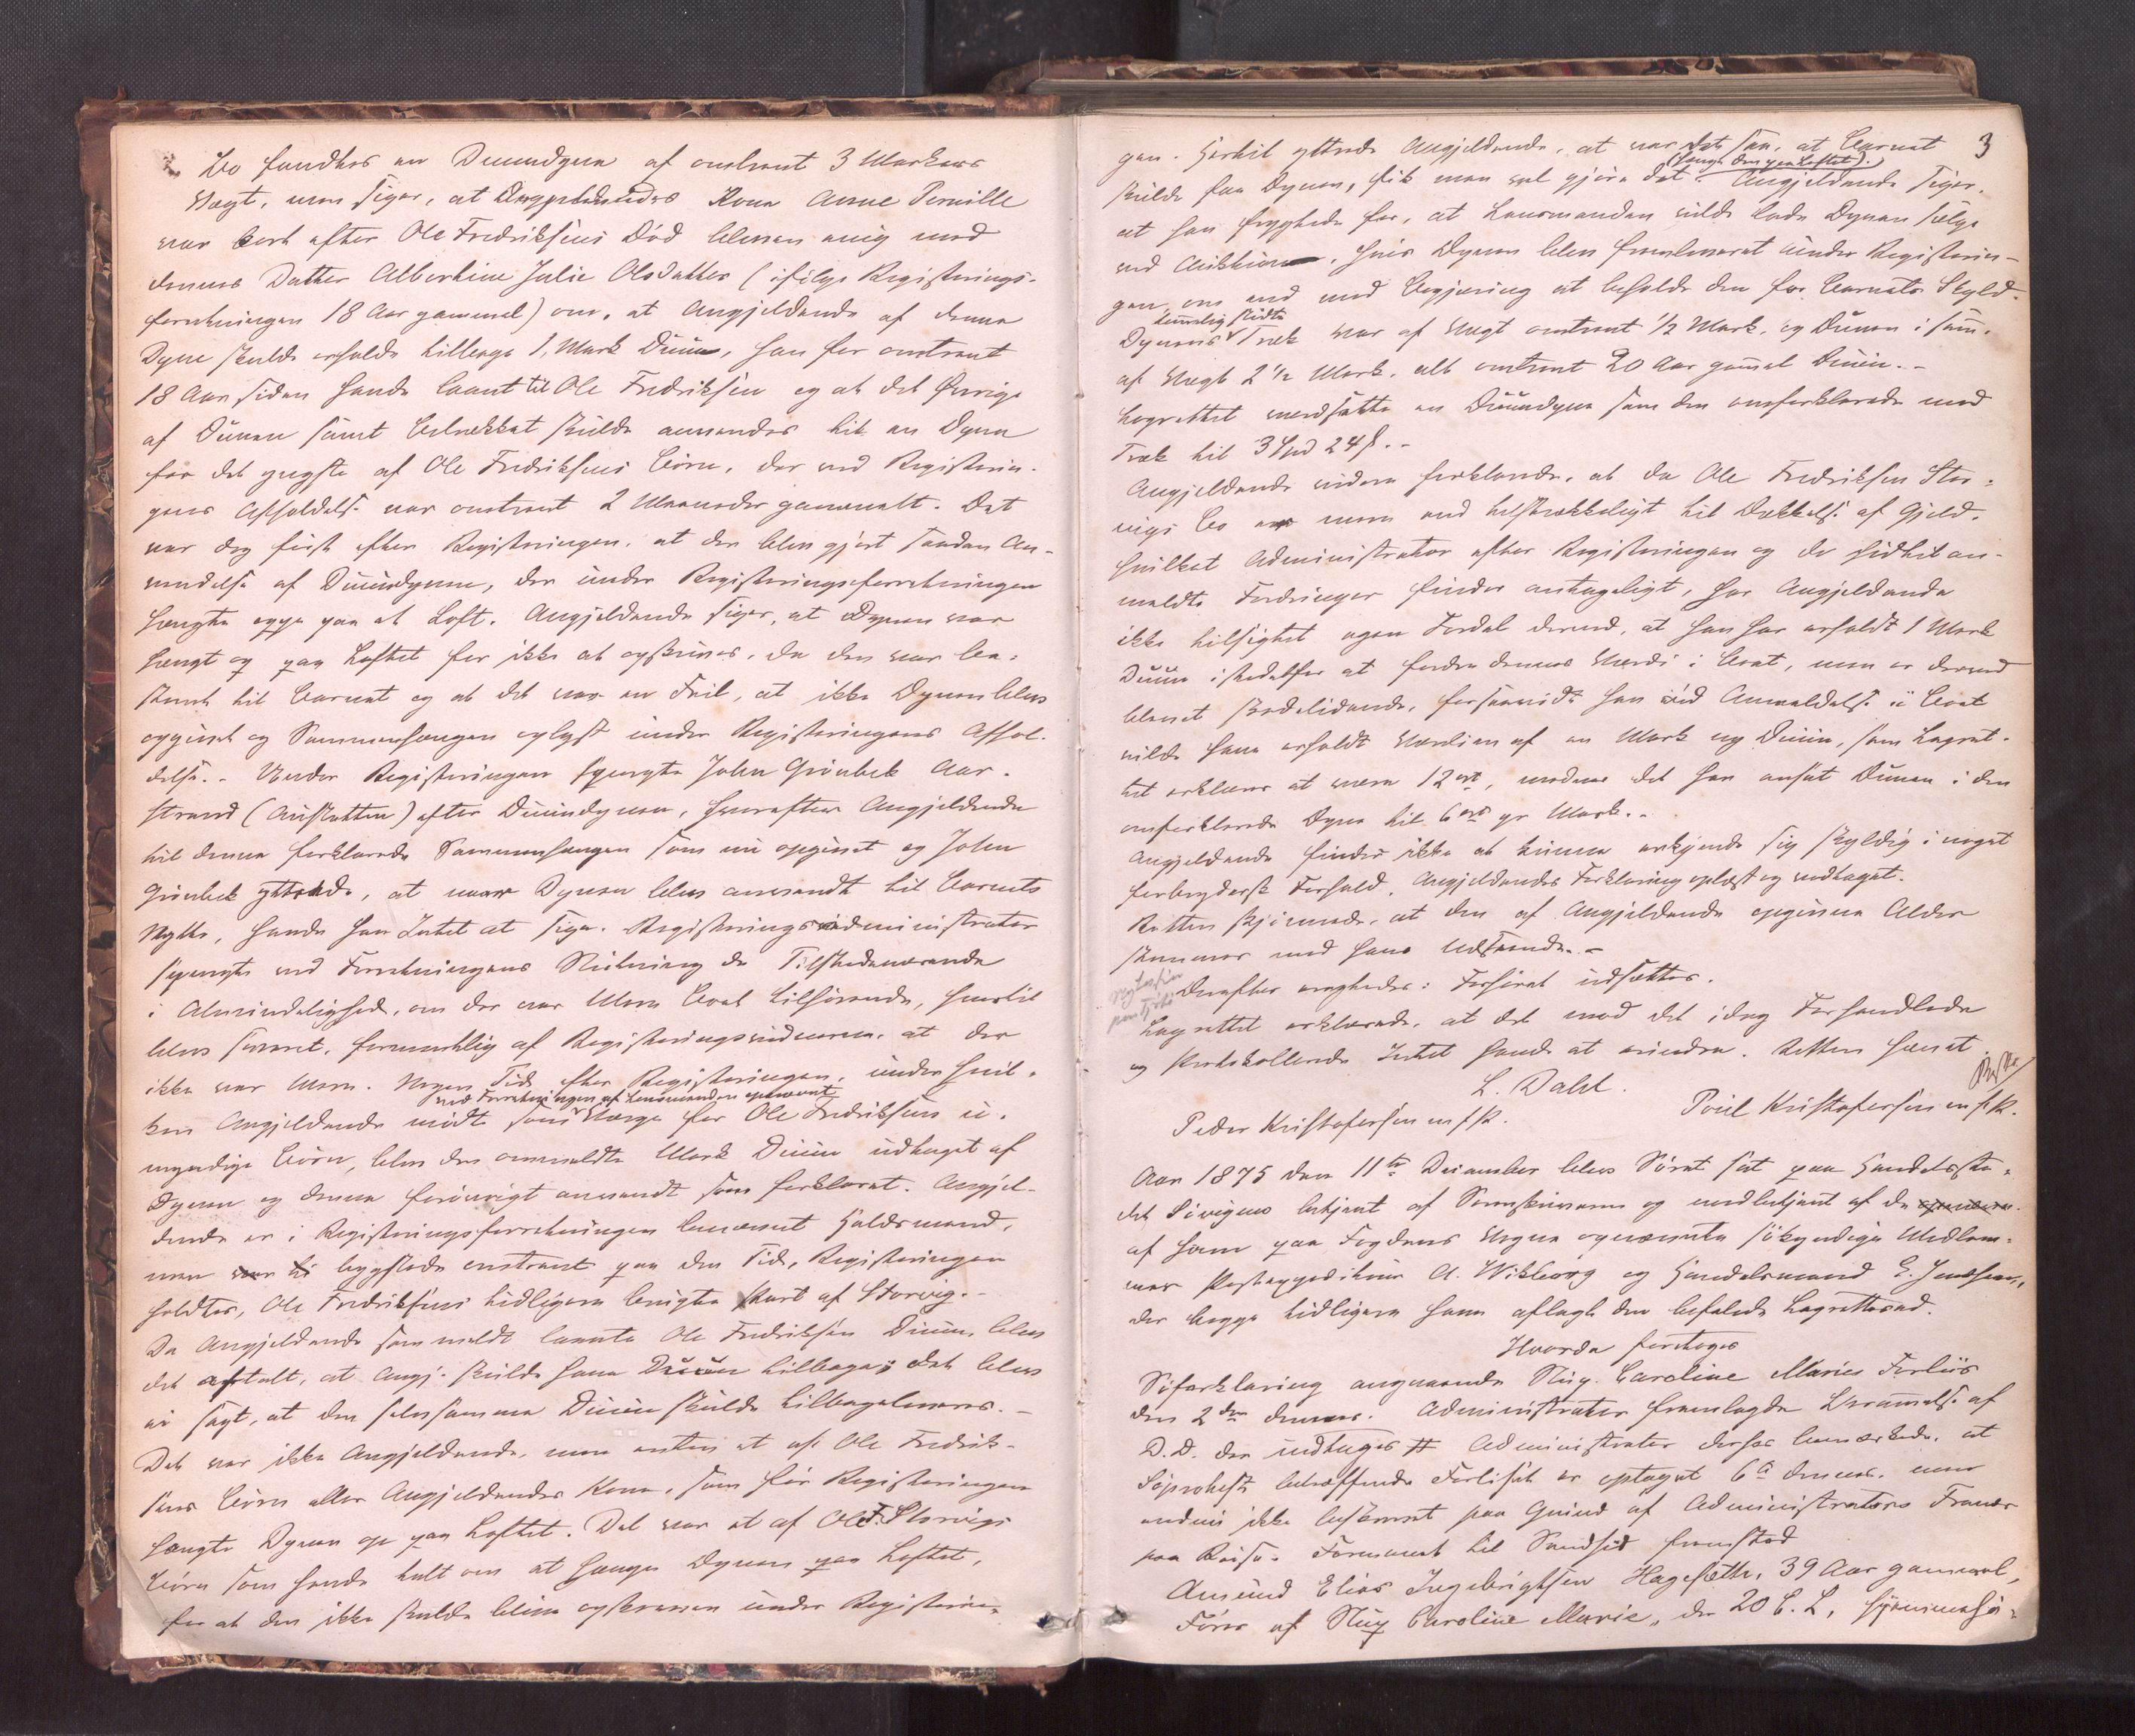 Bo fandtes en Duundyne af omtrent 3 Markers
Vægt, men siger, at Angjeldendes Kone Anne Pernille
var kort efter Ole Fredriksens Død bleven enig med
dennes Datter Albertine Julie Olsdatter (ifølge Registrerings-
forretningen 18 Aar gammel) om, at Angjeldende af denne
Dyne skulde erholde tilbage 1, Mark Duun, han for omtrent
18 Aar siden havde laant til Ole Fredriksen og at det Øvrige
af Dunen samt Betrekket skulde anvendes til en Dyne
for det yngste af Ole Fredriksens Børn, der ved Registerin-
gens Afholdelse var omtrent 2 Maaneder gammelt. Det
var dog først efter Registreringen, at der blev gjort saadan An-
vendelse af Duundynen, der under Registreringsforretningen
hængte oppe paa et Loft. Angjeldende siger, at Dynen var
hængt op paa Loftet for ikke at opskrives, da den var be-
stemt til Barnet og at det var en Feil, at ikke Dynen blev
opgivet og Sammenhængen oplyst under Registreringens Afhol-
delse. - Under Registreringen spurgte John Grönbek Aar-
strand (Auskutten) efter Duundynen, hvorefter Angjeldende
til denne forklarede Sammenhængen som nu opgivet og John
Grönbek yttrede, at naar Dynen blev anvendt til Barnets
Nytte, havde han Intet at sige. Registreringsadministrator
spurgte ved Forretningens Slutning de Tilstedeværende
i Almindelighed, om der var Mere Boet tilhørende, hvortil
blev svaret, formentlig af Registreringsvidnerne, at der
ikke var Mere. Nogen Tid efter Registreringen, under hvil-
ved Forretningen af Lensmanden opnævnt
ken Angjeldende mødte som Værge for Ole Fredriksens u-
myndige Børn, blev den ommeldte Mark Duun udtaget af
Dynen og denne forøvrigt anvendt som forklaret. Angjel-
dende er i Registreringsforretningen benævnt Huusmand,
men bygslede omtrent paa den Tid, Registreringen
holdtes, Ole Fredriksens tidligere brugte Part af Storvig. -
Da Angjeldende som meldt laante Ole Fredriksen Duun, blev
det aftalt, at Angj. skulde have Duun tilbage; det blev
ei sagt, at den selvsamme Duun skulde tilbageleveres. -
Det var ikke Angjeldende, men enten et af Ole Fredrik-
sens Børn eller Angjeldendes Kone, som før Registreringen
hængte Dynen op paa Loftet. Det var et af Ole F. Storvigs
Børn som havde talt om at hænge Dynen paa Loftet,
for at den ikke skulde blive opskreven under Registrerin-
3
gen. Hertil yttrede Angjeldende, at var det saa, at Barnet
(hængt den paa Loftet).
skulde faa Dynen, fik man vel gjøre det. Angjeldende siger,
at han frygtede for, at Lensmanden vilde lade Dynen sælge
ved Auktion, hvis Dynen blev fremleveret under Registerin-
gen, om end med Begjæring at beholde den for Barnets Skyld.
temmelig slidte
Dynens Træk var af Vægt omtrent 1/2 Mark, og Dunen i samme
af Vægt 2 1/2 Mark, alt omtrent 20 Aar gammel Duun. -
Lagrettet værdsatte en Duundyne som den omforklarede med
Træk til 3 Spd 24 ſ. -
Angjeldende videre forklarede, at da Ole Fredriksen Stor-
vigs Bo er mere end tilstrækkeligt til Dækkelse af Gjeld,
hvilket Administrator efter Registreringen og de hidtil an-
meldte Fordringer finder antageligt, har Angjeldende
ikke tilsigtet egen Fordel derved, at han har erholdt 1 Mark
Duun istedetfor at fordre dennes Værdi i Boet, men er derved
blevet skadelidende, forsaavidt han ved Anmeldelse i Boet
vilde have erholdt Værdien af en Mark ny Duun, som Lagret-
tet erklærer at være 12 ort, medens det har ansat Dunen i den
omforklarede Dyne til 6 ort pr Mark. -
Angjeldende finder ikke at kunne erkjende sig skyldig i noget
forbrydersk Forhold. Angjeldendes Forklaring oplæst og vedtaget.
Retten skjønnede, at den af Angjeldende opgivne Alder
stemmer med hans Udseende. -
Derefter eragtedes: Forhøret udsættes.
Lagrettet erklærede, at det mod det idag Forhandlede
og Protokollerede Intet havde at erindre. Retten hævet
L. Dahl.
Peder Kristofersen m. f. P.
Poul Kristofersen m. f. P.
Aar 1875 den 11te December blev Søret sat paa Handelssta-
det Sövigens betjent af Sorenskriveren og medbetjent af de
af ham paa Fogdens Vegne opnævnte søkyndige Medlem-
mer Postexpeditør A. Wiborg og Handelsmand
der begge tidligere have aflagt den befalede Lagrettesed.
Hvorda foretoges
Søforklaring angaaende Slup. Caroline Maries Forliis
den 2den dennes. Administrator fremlagde Berammelse af
D. D. der indtages # Administrator derhos bemærkede, at
Søprotest betræffende Forliset er optaget 6te dennes, men
endnu ikke beskrevet paa Grund af Administrators Fravær
paa Reise. Fremmødt til Vandsid fremstod
Amund Elias Ingebrigtsen Hagesætte, 39 Aar gammel,
Fører af Slup Caroline Marie, der 20 C. L, hjemmehø-